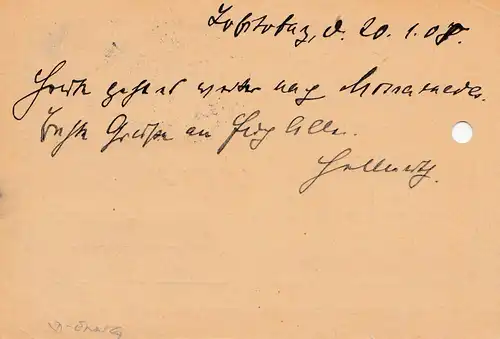 Lobitobay, d. 20.1.08.
Heute geht es weiter nach Mossamedes.
Beste Grüße an Euch Alle.
Hellwith